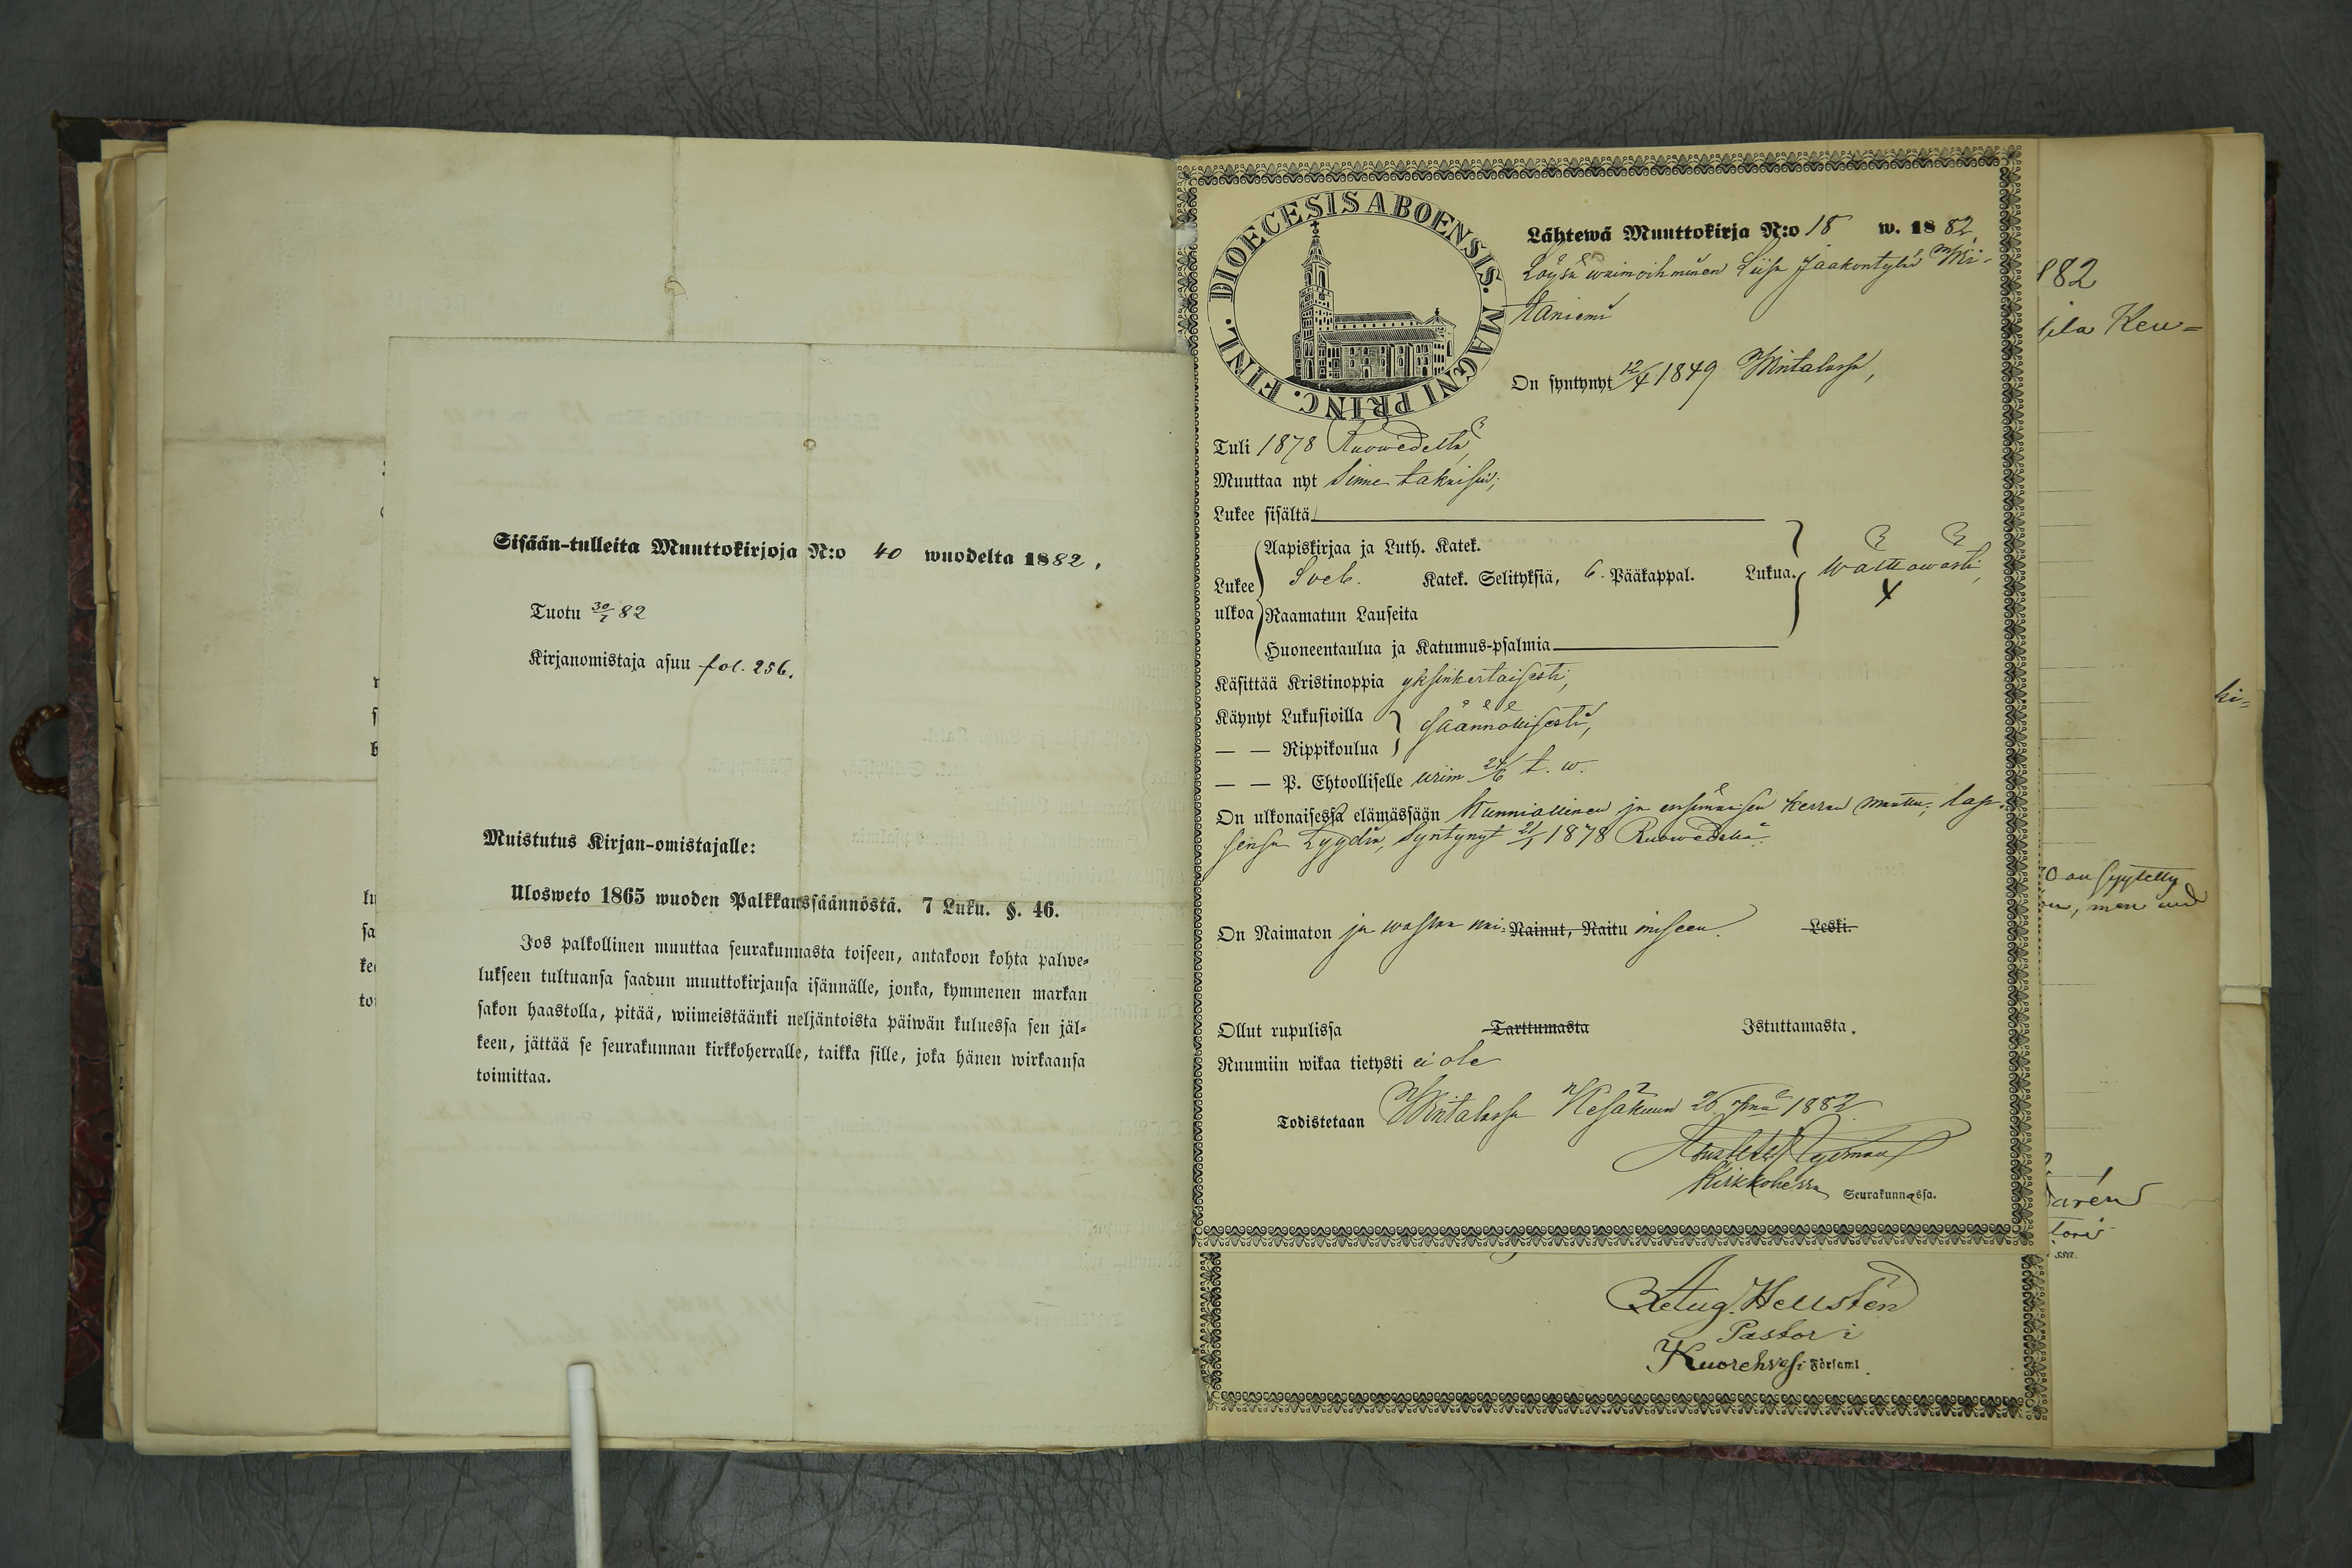 Sisään-tulleita Muuttokirjoja N:o 40 wuodelta 1882.
Tuotu 30/7 82
Kirjanomistaja asuu fol. 256.
Muistutus Kirjan-omistajalle:
Ulosweto 1865 wuoden Palkkaussäännöstä. 7 Luku. §. 46.
Jos palkollinen muuttaa seurakunnasta toiseen, antakoon kohta palwe-
lukseen tultuansa saadun muuttokirjansa isännälle, jonka, kymmenen markan
sakon haastolla, pitää, wiimeistäänki neljäntoista päiwän kuluessa sen jäl-
keen, jättää se seurakunnan kirkkoherralle, taikka sille, joka hänen wirkaansa
toimittaa.
DIOECESIS ABOENSIS. MAGNI PRINC. FINL.
Lähtewä Muuttokirja N:o 18 w. 1882
Löysä waimoihminen Liisa Jaakontytär
taniemi
On syntynyt 12/4 1849
Tuli 1878 Ruowedeltä,
Muuttaa nyt Sinne takaisin;
Lukee sisältä
Aapiskirjaa ja Luth. Katek.
Lukee Sveb. Katek. Selityksiä, 6. Pääkappal. Lukua. wälttäwästi,
ulkoa Raamatun Lauseita
Huoneentaulua ja Katumus-psalmia
Käsittää Kristinoppia yksinkertaisesti,
Käynyt Lukusioilla säännöllisesti,
— — Rippikoulua
— — P. Ehtoolliselle wiim. 24/6 t. w.
On ulkonaisessa elämässään kunniallinen ja ensimmäisen kerran lap-
sensa syntynyt 21/1 1878 Ruowedellä.
On Naimaton ja wapaa nai- Nainut, Naitu miseen. Leski.
Ollut rupulissa Tarttumasta Istuttamasta.
Ruumiin wikaa tietysti ei ole
Todistetaan Kesäkuun 26 1882
Kirkkoherra Seurakunnassa.
Aug. Hellstén
Pastor i
Kuorehvesi Församl.
882
Keu=
ki=
0 an
men
arén
tori
ssa.